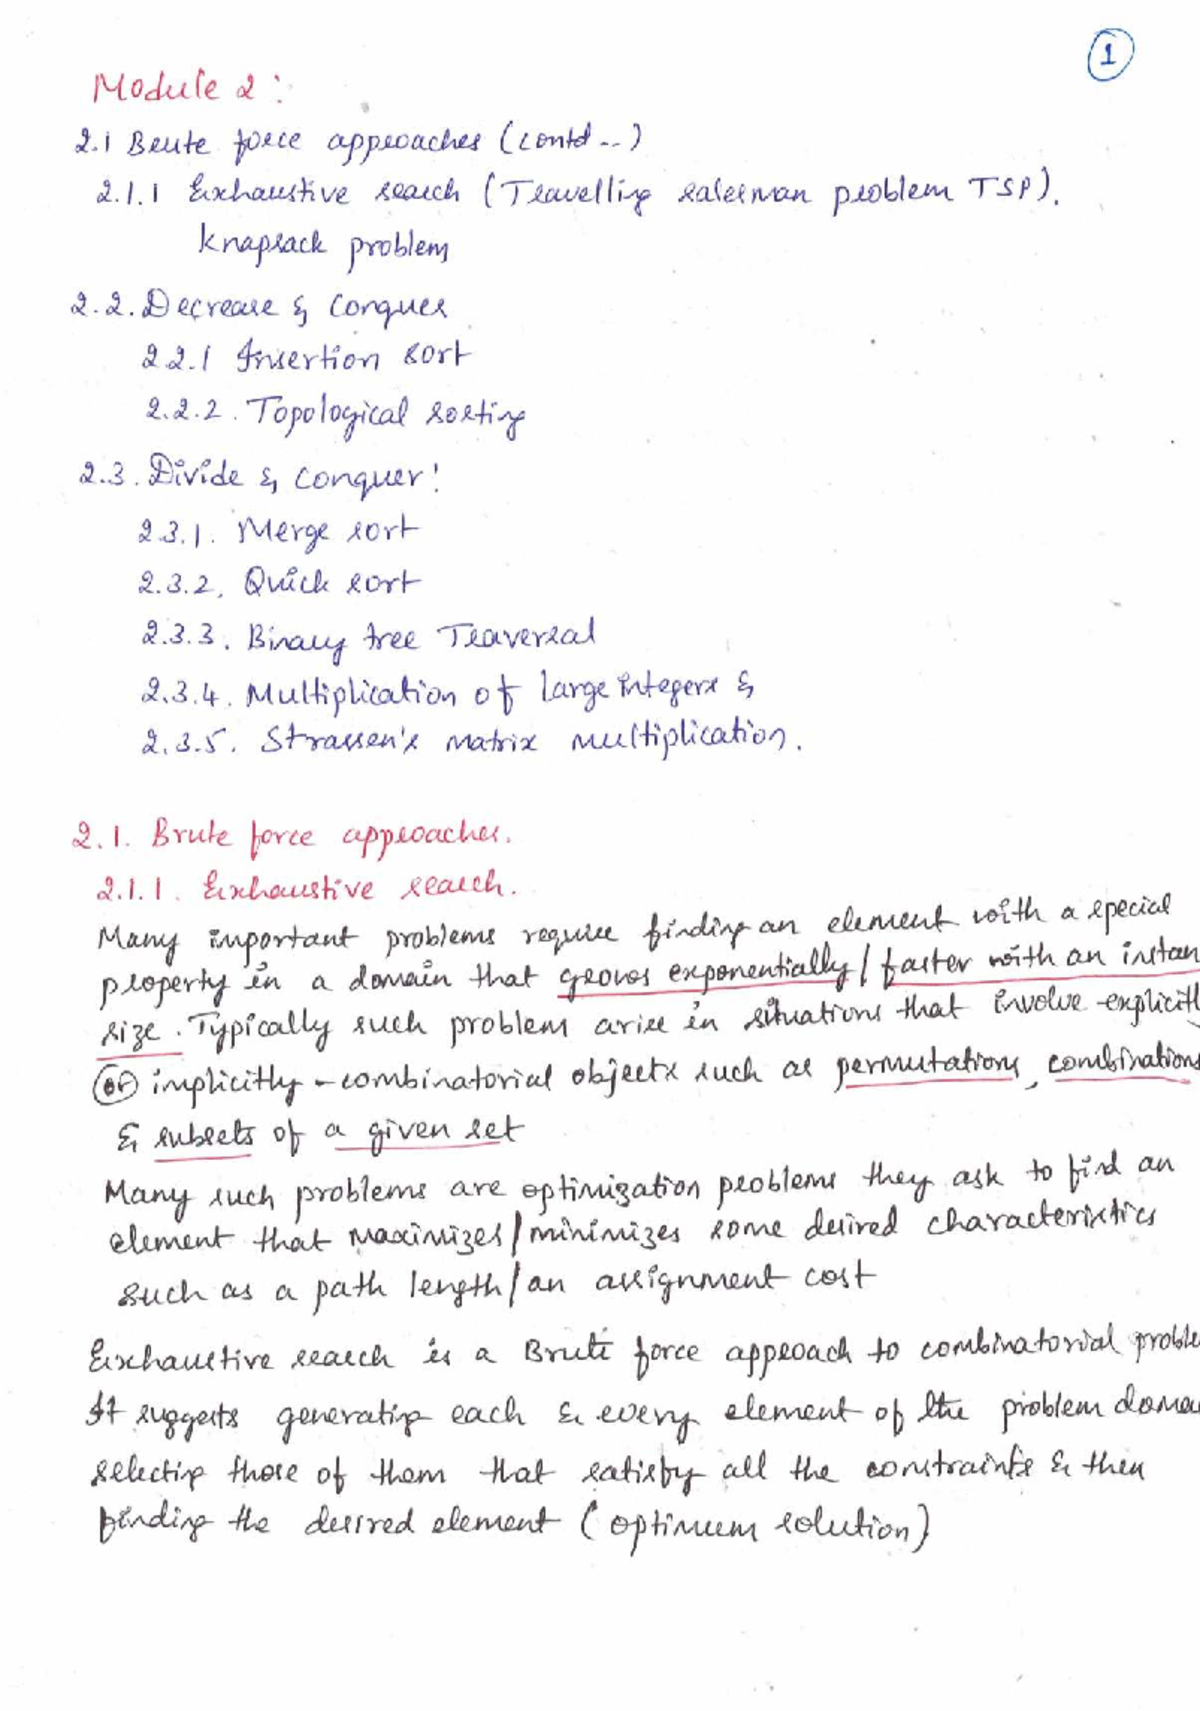 1
Module 2 :
2.1 Brute force approaches (contd..)
2.1.1 Exhaustive search (Travelling salesman problem TSP).
Knapsack problem
2.2. Decrease & Conquer
2.2.1 Insertion sort
2.2.2. Topological sorting
2.3. Divide & Conquer:
2.3.1. Merge sort
2.3.2. Quick sort
2.3.3. Binary tree Traversal
2.3.4. Multiplication of large integers &
2.3.5. Strassen's matrix multiplication.
2.1. Brute force approaches.
2.1.1. Exhaustive search.
Many important problems require finding an element with a special
property in a domain that grows exponentially / faster with an instan
size. Typically such problem arise in situations that involve -explicitl
(or) implicitly - combinatorial objects such as permutations, combinations
& subsets of a given set
Many such problems are optimization problems they ask to find an
element that maximizes/minimizes some desired characteristics
such as a path length/an assignment cost
Exhaustive search is a Brute force approach to combinatorial proble
It suggests generating each & every element of the problem domai
selecting those of them that satisfy all the constraints & then
finding the desired element (optimum solution)